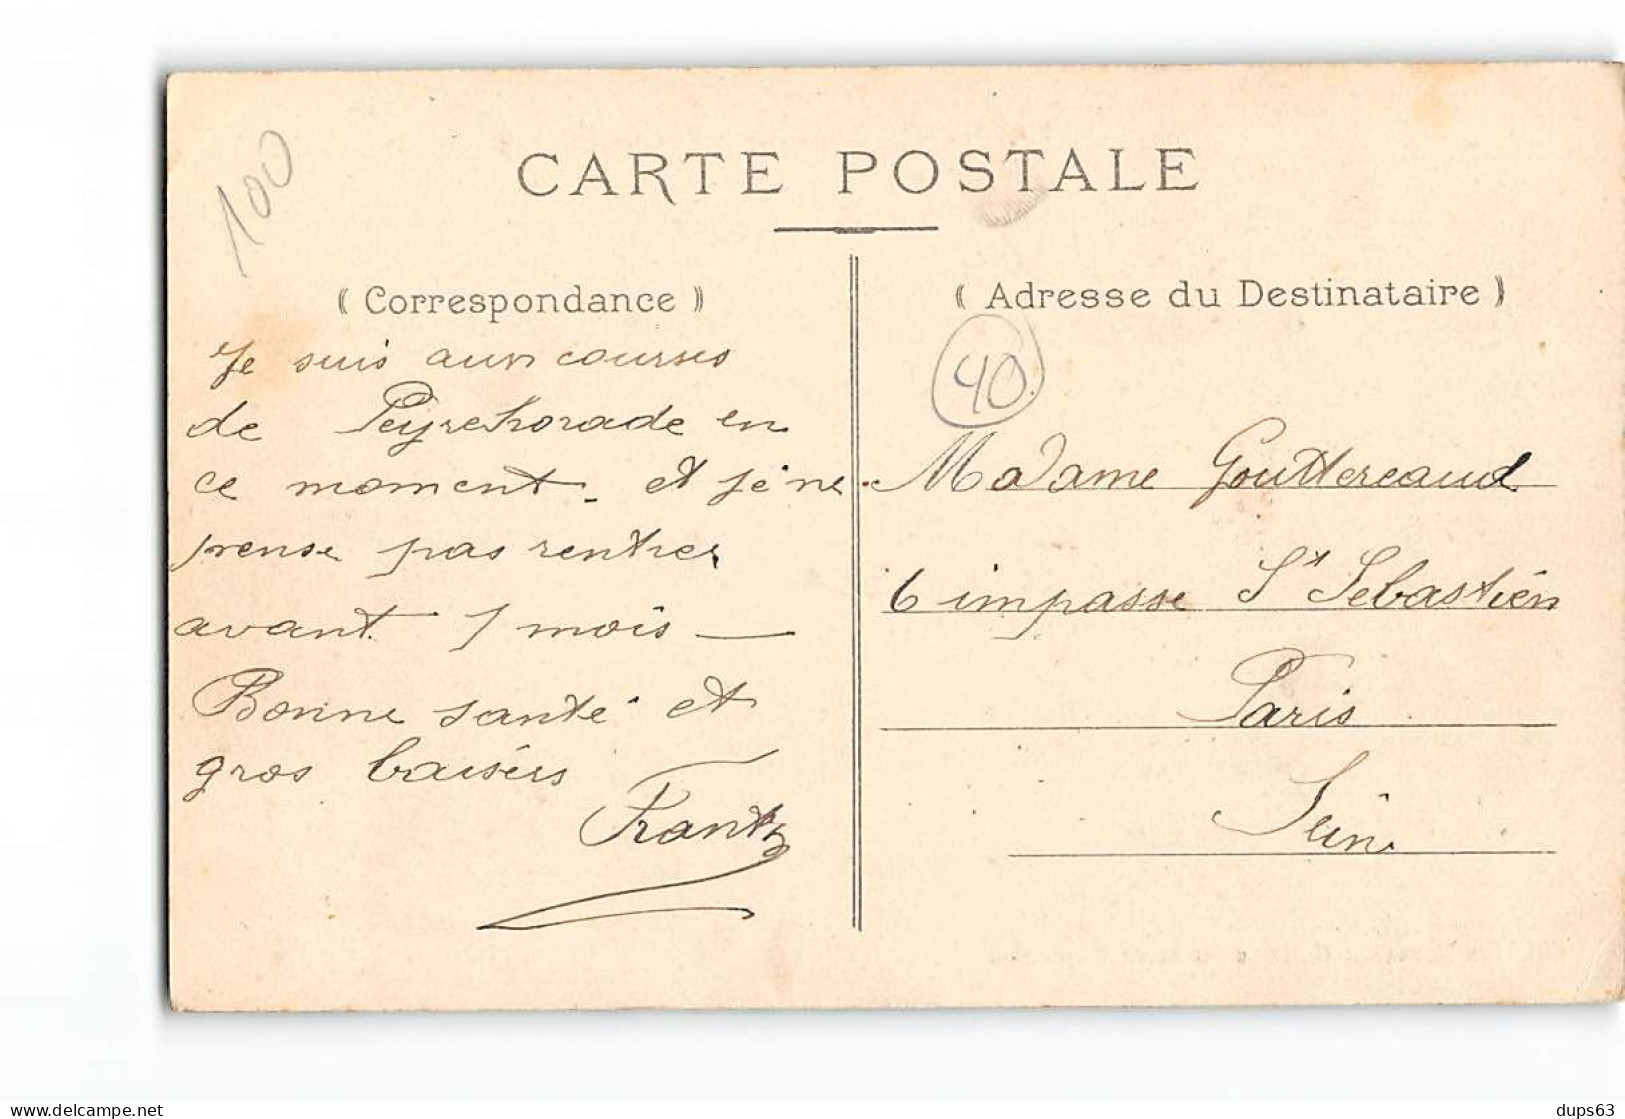 100
CARTE POSTALE
( Correspondance )
Je suis aux courses
de Peyrehorade en
ce moment - et je ne
pense pas rentrer
avant 1 mois —
Bonne santé et
gros baisers
Frantz
( Adresse du Destinataire )
40
Madame Gouttereaud
6 impasse St Sebastién
Paris
Seine
delcampe.net
dups63